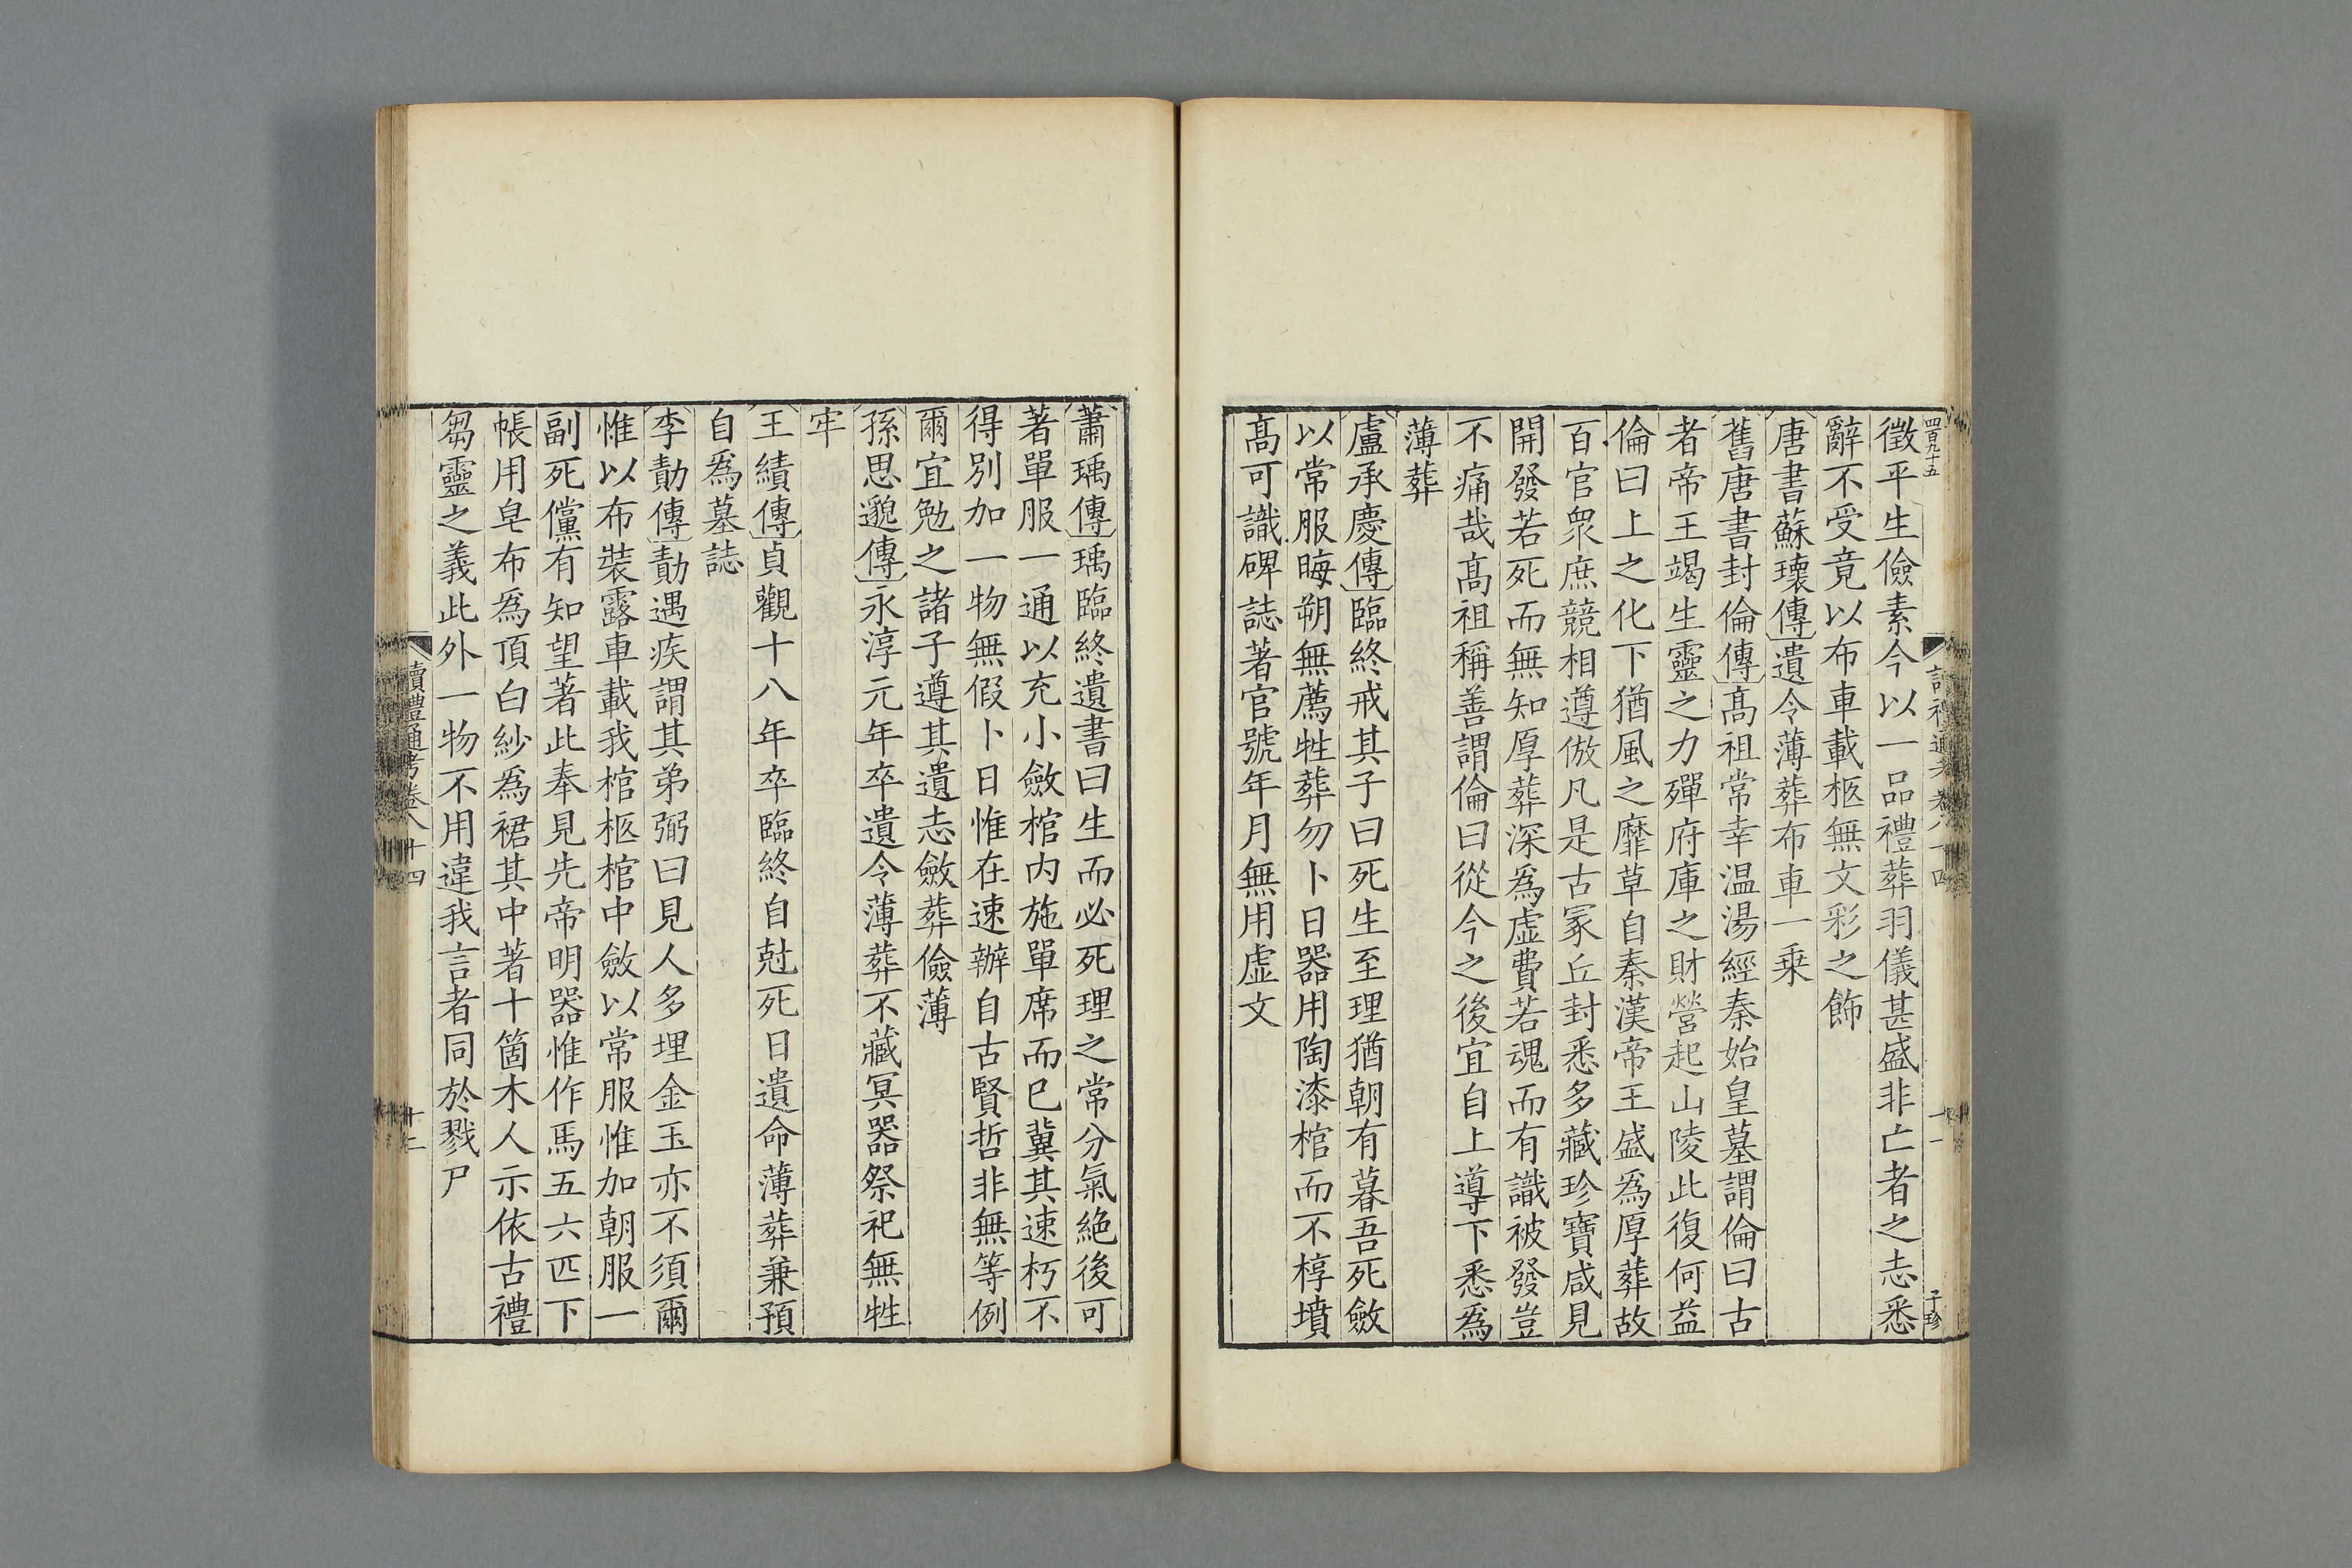 四百九十五
徵平生儉素今以一品禮葬羽儀甚盛非亡者之志悉
辭不受竟以布車載柩無文彩之飾
唐書蘇瓌傳遺令薄葬布車一乗
舊唐書封倫傳髙祖常幸温湯經秦始皇墓謂倫曰古
者帝王竭生靈之力殫府庫之財營起山陵此復何益
倫曰上之化下猶風之靡草自秦漢帝王盛為厚葬故
百官衆庶競相遵倣凡是古冢丘封悉多藏珍寶咸見
開發若死而無知厚葬深爲虚費若魂而有識被發豈
不痛哉髙祖稱善謂倫曰從今之後宜自上導下悉爲
薄葬
盧承慶傳臨終戒其子曰死生至理猶朝有暮吾死斂
以常服晦朔無薦牲葬勿卜日器用陶漆棺而不椁墳
髙可識碑誌著官號年月無用虚文
子珍
蕭瑀傳瑀臨終遺書曰生而必死理之常分氣絶後可
著單服一通以充小斂棺内施單席而巳冀其速朽不
得別加一物無假卜日惟在速辦自古賢哲非無等例
爾宜勉之諸子遵其遺志斂葬儉薄
孫思邈傳永淳元年卒遺令薄葬不藏冥器祭祀無牲
牢
王績傳貞觀十八年卒臨終自尅死日遺命薄葬兼預
自爲墓誌
李勣傳勣遇疾謂其弟弼曰見人多埋金玉亦不須爾
惟以布裝露車載我棺柩棺中斂以常服惟加朝服一
副死儻有知望著此奉見先帝明器惟作馬五六匹下
帳用皂布爲頂白紗爲裙其中著十箇木人示依古禮
芻靈之義此外一物不用違我言者同於戮尸
讀禮通考卷八十四
十二